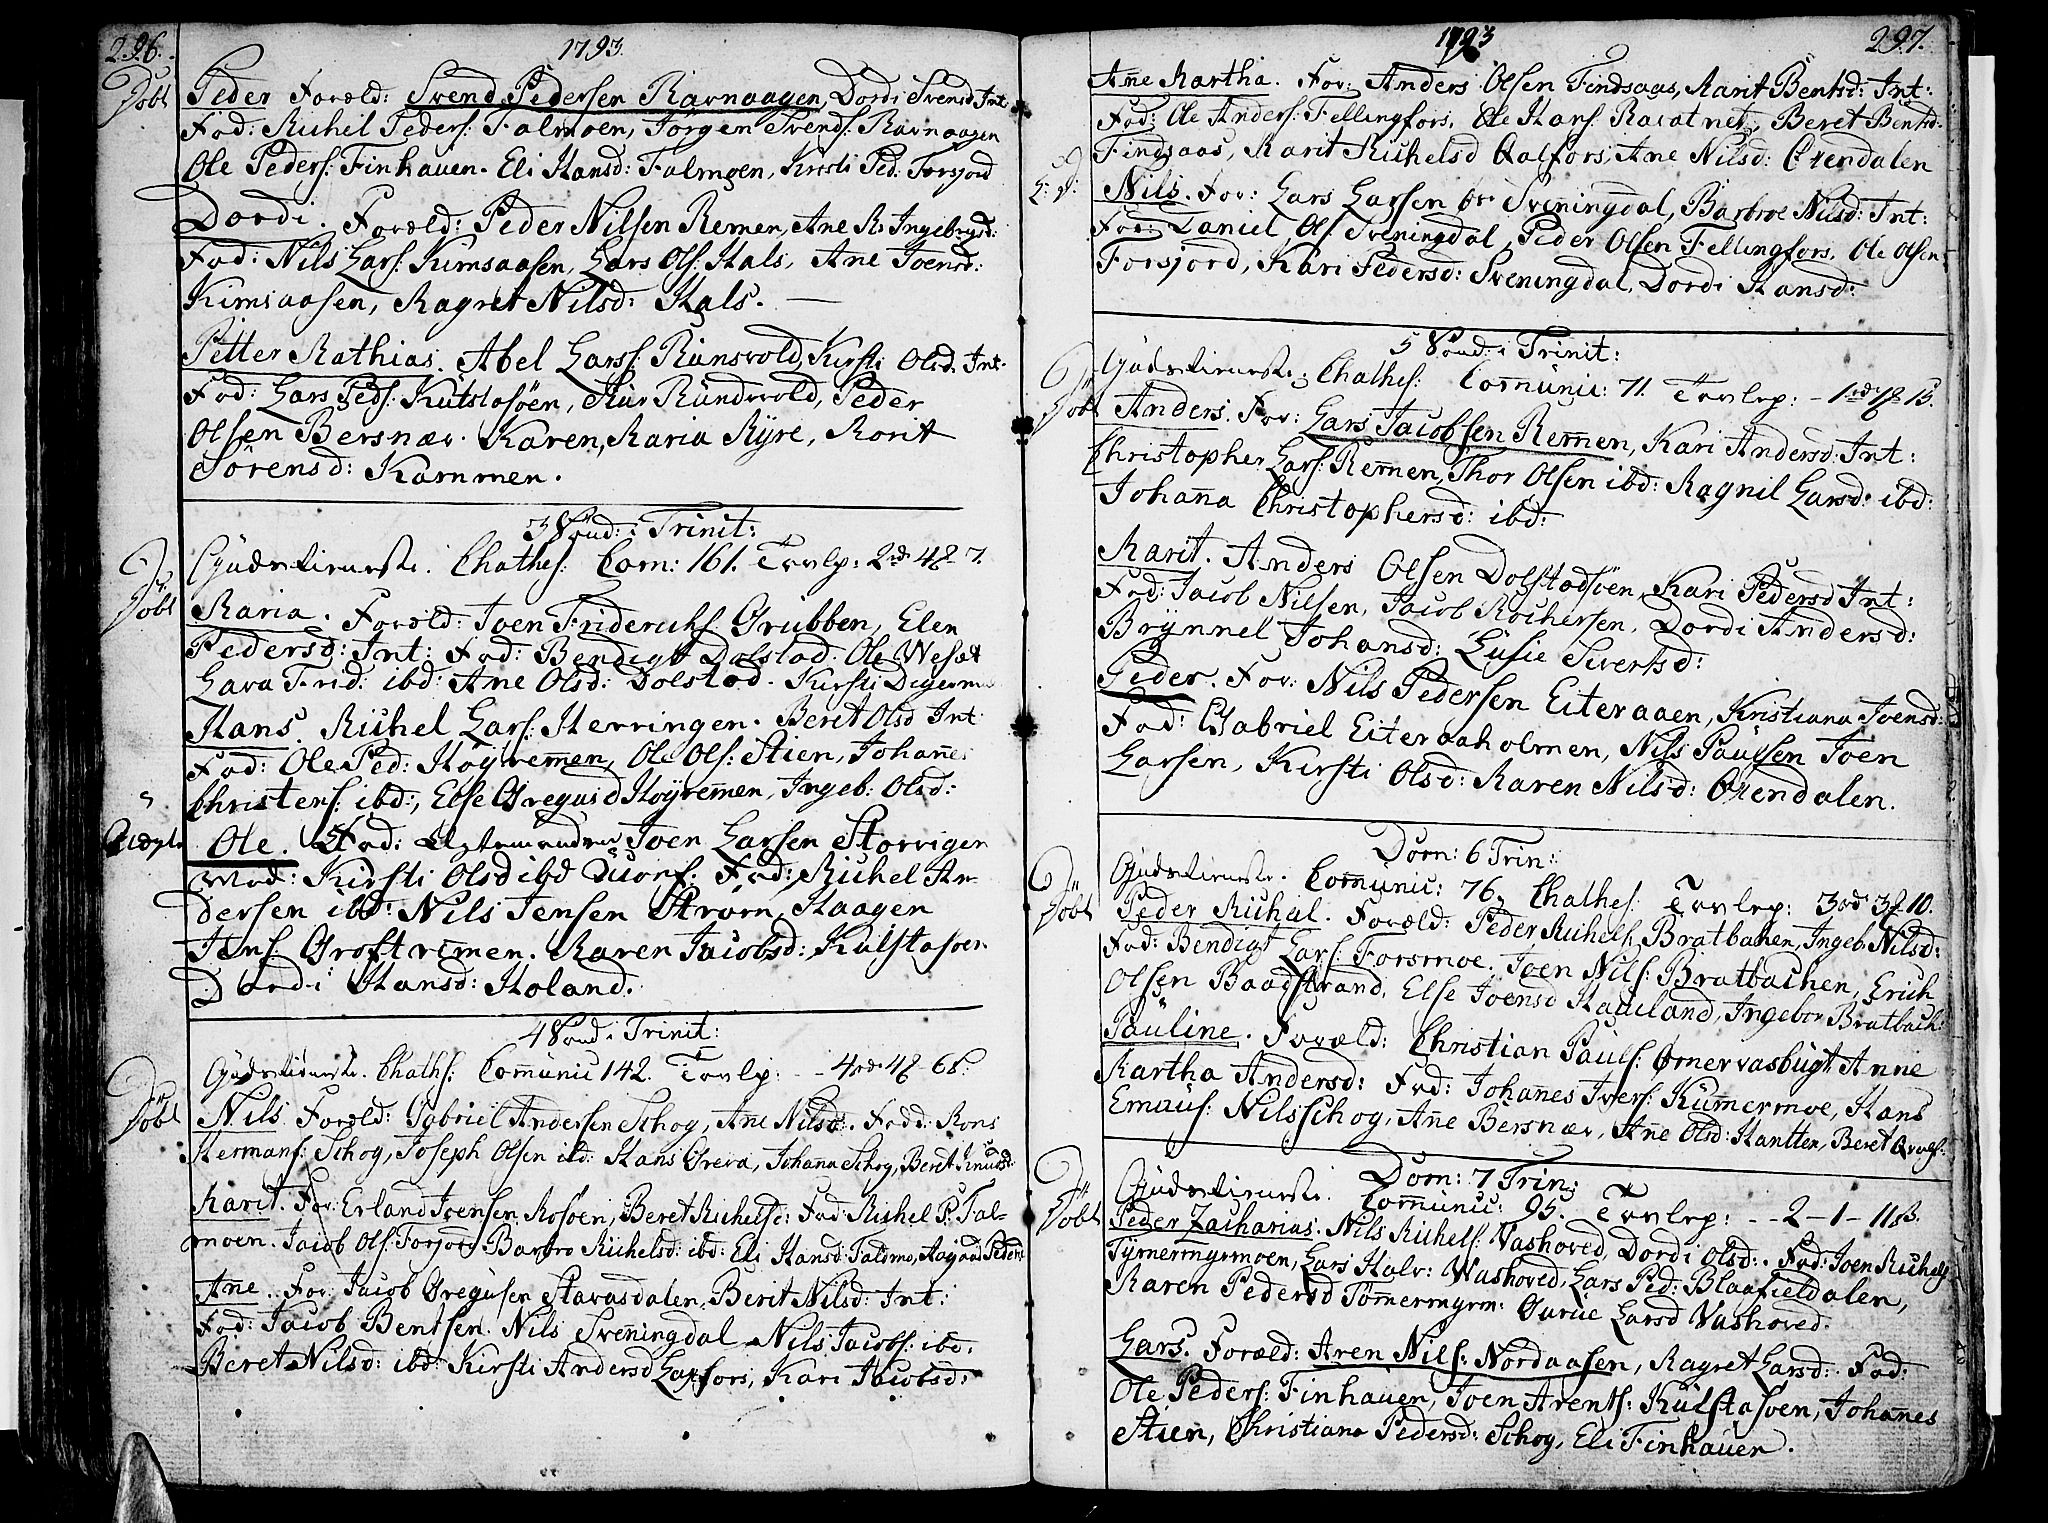 296.
1793.
Döbt
Peder Foræld: Svend Pedersen Ravnaagen, Dordi Svensd Int:
Fad: Michel Peders: Falmoen, Jörgen Svends: Ravnaagen
Ole Peders: Finhauen. Eli Hansd: Falmoen, Kirsti Ped: Forsjord
Dordi. Foræld: Peder Nilsen Remen, Ane M: Ingebrigsd:
Fad: Nils Lars: Kimsaasen, Lars Ols: Hals, Ane Joensd:
Kimsaasen, Magret Nilsd: Hals.
Petter Mathias. Abel Larss: Rünsvold, Kirsti Olsd. Int.
Fad: Lars Peds: Kulstasöen, Rünsvold, Peder
Olsen Bersnær. Karen, Maria Ryre, Marit
Sörensd: Kammen.
3 Sönd: i Trinit:
Gudstieneste. Chathes: Com: 161. Tavlep: 2rd 4ß 7.
Döbt
Maria. Foræld: Joen Friderichs: Grübben, Elen
Pedersd: Int: Fad: Bendigt Dolstad. Ole Wesæt
Lava Frid: ibd: Ane Olsd: Dolstad. Kirsti Digerm
Hans. Michel Lars: Herringen. Beret Olsd Int
Fad: Ole Ped: Höyremen, Ole Ols: Stien, Johanes
Christens: ibd:, Else Gregusd Höyremen, Ingeb: Olsd:
Uægte
Ole. Joen Larsen Storrigen
Mod: Kirsti Olsd ibd Fad: Michel An-
dersen ibd: Nils Jensen Ström, Haagen
Jens: Groftremen. Maren Jacobsd: Kulstasöen
Dordi Hansd: Holand.
4 Sönd: i Trinit:
Gudstieneste. Chaths: Comünic 142. Tavlep: - - 4rd 4ß 6ß.
Döbt
Nils Foræld: Gabriel Andersen Schog, Ane Nilsd:. Fadd: Mons
Hermans: Schog, Joseph Olsen ibd: Hans Greva, Johanna Schog, Beret Knudsd:
Marit. For: Erland Joensen Mosöen, Beret Michelsd: Fad: Michel P: Fal-
moen. Jacob Ols: Forsjord Barbro Michelsd: ibd: Eli Hansd: Falsmo, Magret Pedersd
Ane. For: Jacob Gregusen Stavasdalen, Berit Nilsd: Int:
Fad: Jacob Bentsen. Nils Sveningdal, Nils Jacobs: ibd.
Beret Nilsd: ibd: Kirsti Andersd Laxfors, Kari Jacobsd:
1793
297.
Ane Martha. For: Anders Olsen Findsaas, Marit Bentsd: Int:
Fad: Ole Anders: Fellingfors, Ole Hans: Vatnet, Beret Bentsd:
Findsaas, Marit Michelsd Aalfors, Ane Nilsd: Örendalen
Nils. For: Lars Larsen Sveningdal, Barbroe Nilsd: Int:
For: Daniel Ols: Sveningdal, Peder Olsen Fellingfors. Ole Olsen
Forsjord, Kari Pedersd: Sveningdal, Dordi Hansd:
5 Sönd: i Trinit:
Gudstieneste: Chathes: Commünic: 71. Tavlep: - 1rd 1ß 15.
Döbt
Anders. For: Lars Jacobsen Remen, Kari Andersd: Int:
Christopher Lars: Remen, Thor Olsen ibd: Magnil Larsd: ibd:
Johana Christophersd: ibd:
Marit. Anders Olsen Dolstadsöen, Kari Pedersd Int:
Fad: Jacob Nilsen, Jacob Mochersen, Dordi Andersd:
Brynnel Johansd: Lüsie Sivertsd:
Peder. For: Nils Pedersen Eiteraaen, Kristiana Joensd:
Fad: Gabriel Eiteraaholmen, Nils Paulsen Joen
Larsen, Kirsti Olsd: Maren Nilsd: Örendalen.
Dom: 6 Trin:
Gudstieneste. Comunic: 76, Chathes: Tavlep: 3rd 3ß 10.
Döbt
Peder Michal. Foræld: Peder Michels: Bratbaken, Ingeb: Nilsd:
Fad: Bendigt Lars: Forsmoe. Joen Nils: Bratbachen, Erich
Olsen Baadstrand, Else Joensd Haaeland, Ingebor Bratbach:
Pauline. Foræld: Christian Pauls: Ömervasbügt Anne
Martha Andersd: Fad: Johanes Ivers: Kümermoe, Hans
Emaüs: Nilsschog, Ane Bersnær, Ane Olsd: Hantten, Beret
Dom: 7 Trin:
Gudstieneste. Comunic: 95. Tavlep: - - 2 - 1 - 11ß.
Döbt
Peder Zacharias. Nils Michels: Vashoved, Dordi Olsd:. Fad: Joen Michels
Tymermyrmoen, Lars Halv: Washoved, Lars Ped: Blaafieldalen,
Maren Pedersd Tömermyrm: Gurüe Larsd Vashoved.
Lars. Foræld: Aren Nils: Nordaasen, Magret Larsd: Fad:
Ole Peders: Finhauen, Joen Arents: Külstasöen, Johanes
Stien, Christiana Pedersd: Schog, Eli Finhauen.